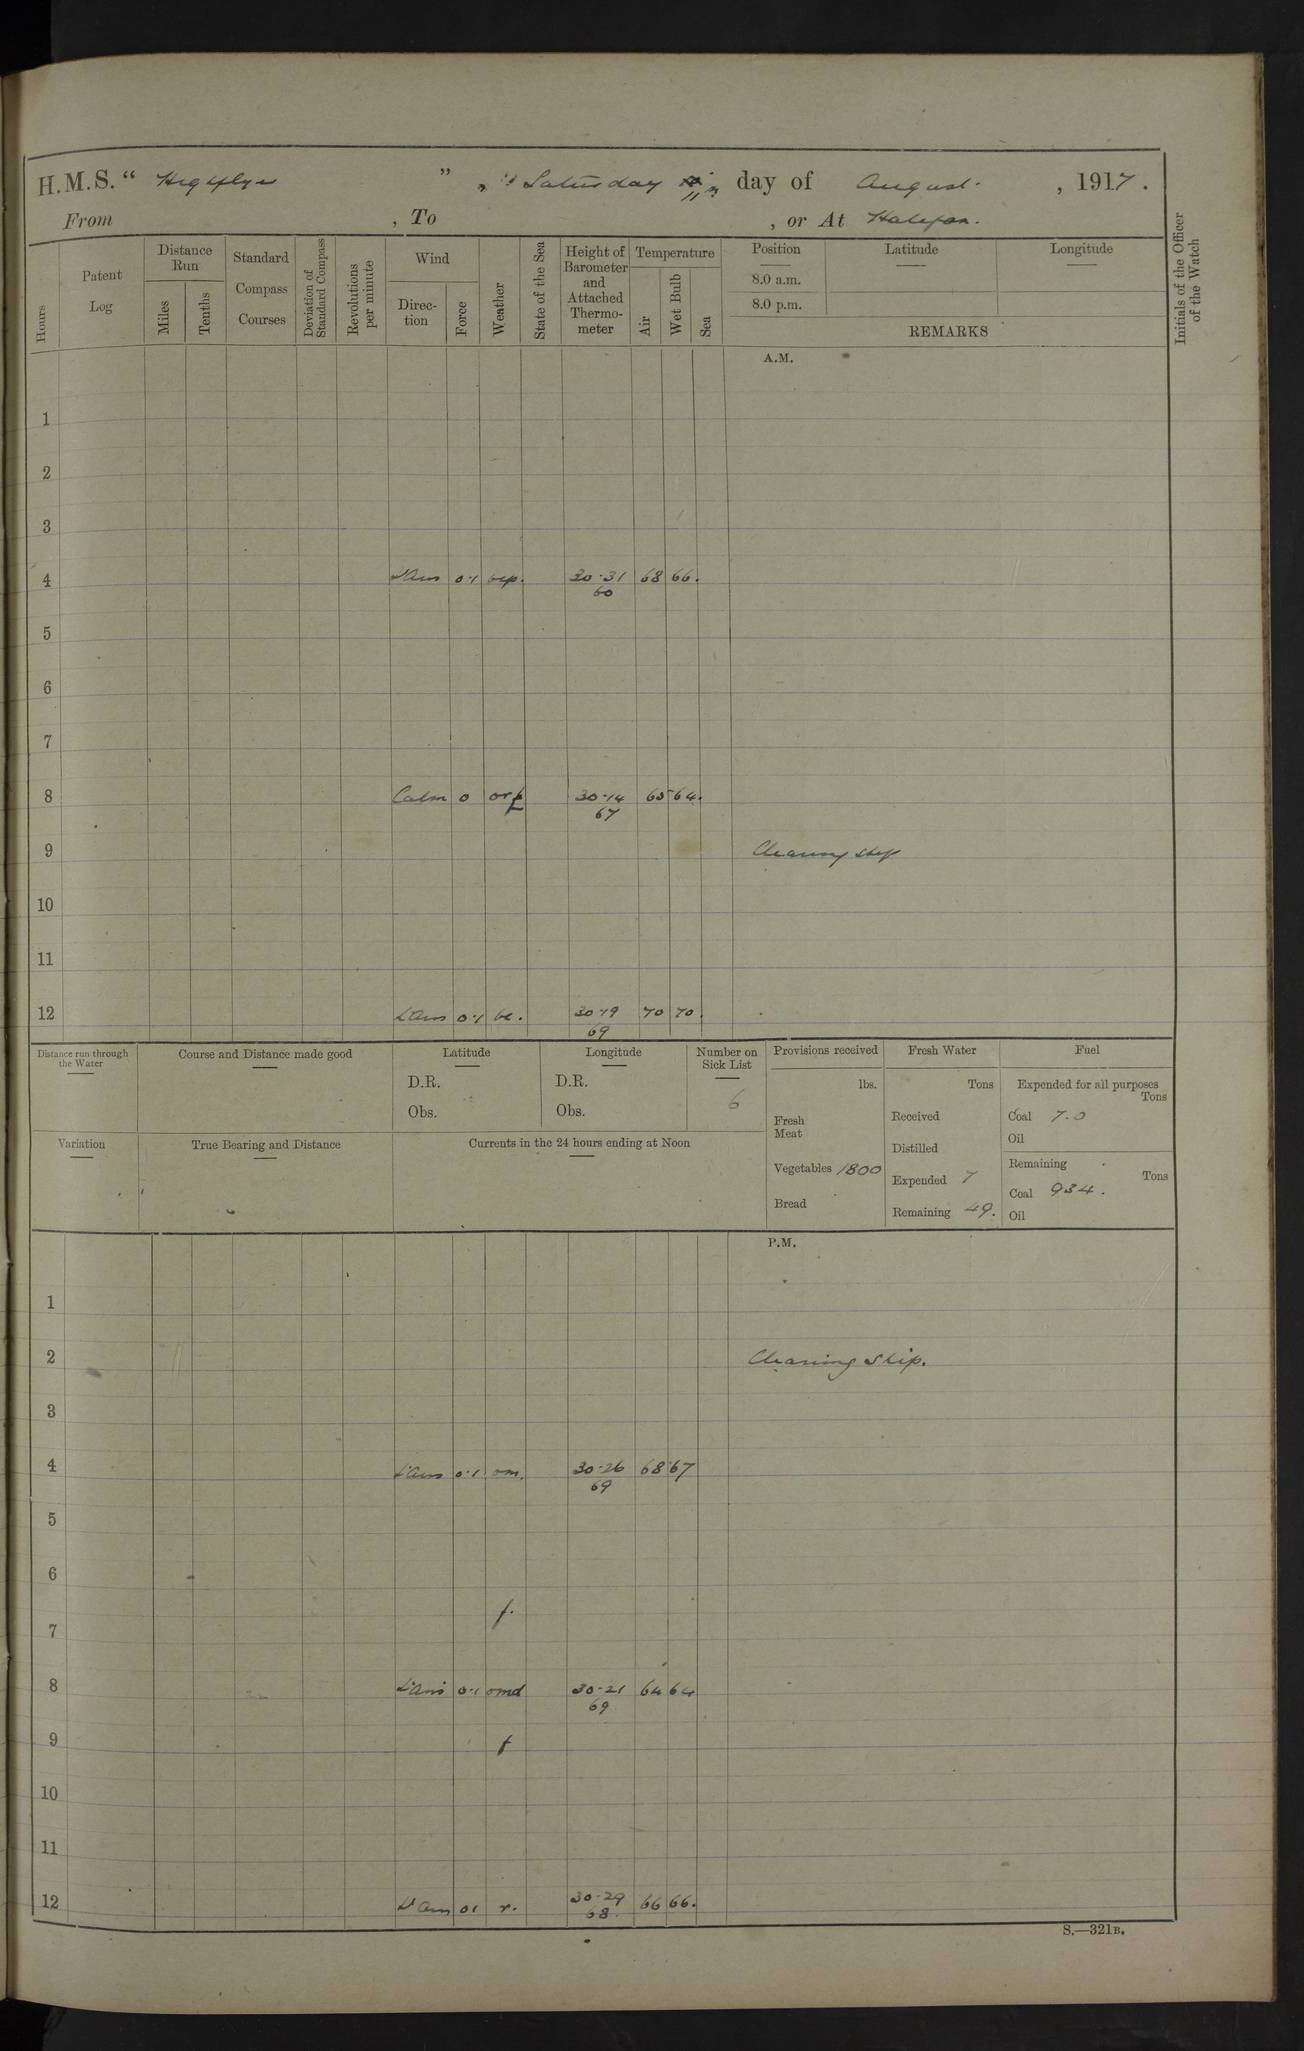 H.M.S. “ Highflyer ” Saturday 11th day of August , 1917.
From , To , or At Halifax.
Hours
Patent Log
Distance Run
Miles
Tenths
Standard Compass Courses
Deviation of Standard Compass
Revolutions per minute
Wind
Direction
Force
Weather
State of the Sea
Height of Barometer and Attached Thermometer
Temperature
Air
Wet Bulb
Sea
Position
8.0 a.m.
8.0 p.m.
Latitude
Longitude
REMARKS
Initials of the Officer of the Watch
A.M.
1
2
3
4 L'Airs 0.1 30.31 68 66.
60
5
6
7
8 Calm 0 orf 30.14 65 64.
67
9 Cleaning ship
10
11
12 L'Airs 0.1 bc. 30.19 70 70.
69
Distance run through the Water
Course and Distance made good
Latitude
D.R.
Obs.
Longitude
D.R.
Obs.
Number on Sick List
6
Provisions received
lbs.
Fresh Meat
Vegetables 1800
Bread
Fresh Water
Tons
Received
Distilled
Expended 7
Remaining 49.
Fuel
Expended for all purposes
Tons
Coal 7.0
Oil
Remaining
Tons
Coal 934.
Oil
Variation
True Bearing and Distance
Currents in the 24 hours ending at Noon
P.M.
1
2 Cleaning Ship.
3
4 L'Airs 0.1 om. 30.26 68 67
69
5
6
f.
7
8 L'Airs 0.1 omd 30.21 64 64
69
9 f
10
11
12 L'Airs 01 r. 30.29 66 66.
68.
S.—321B.